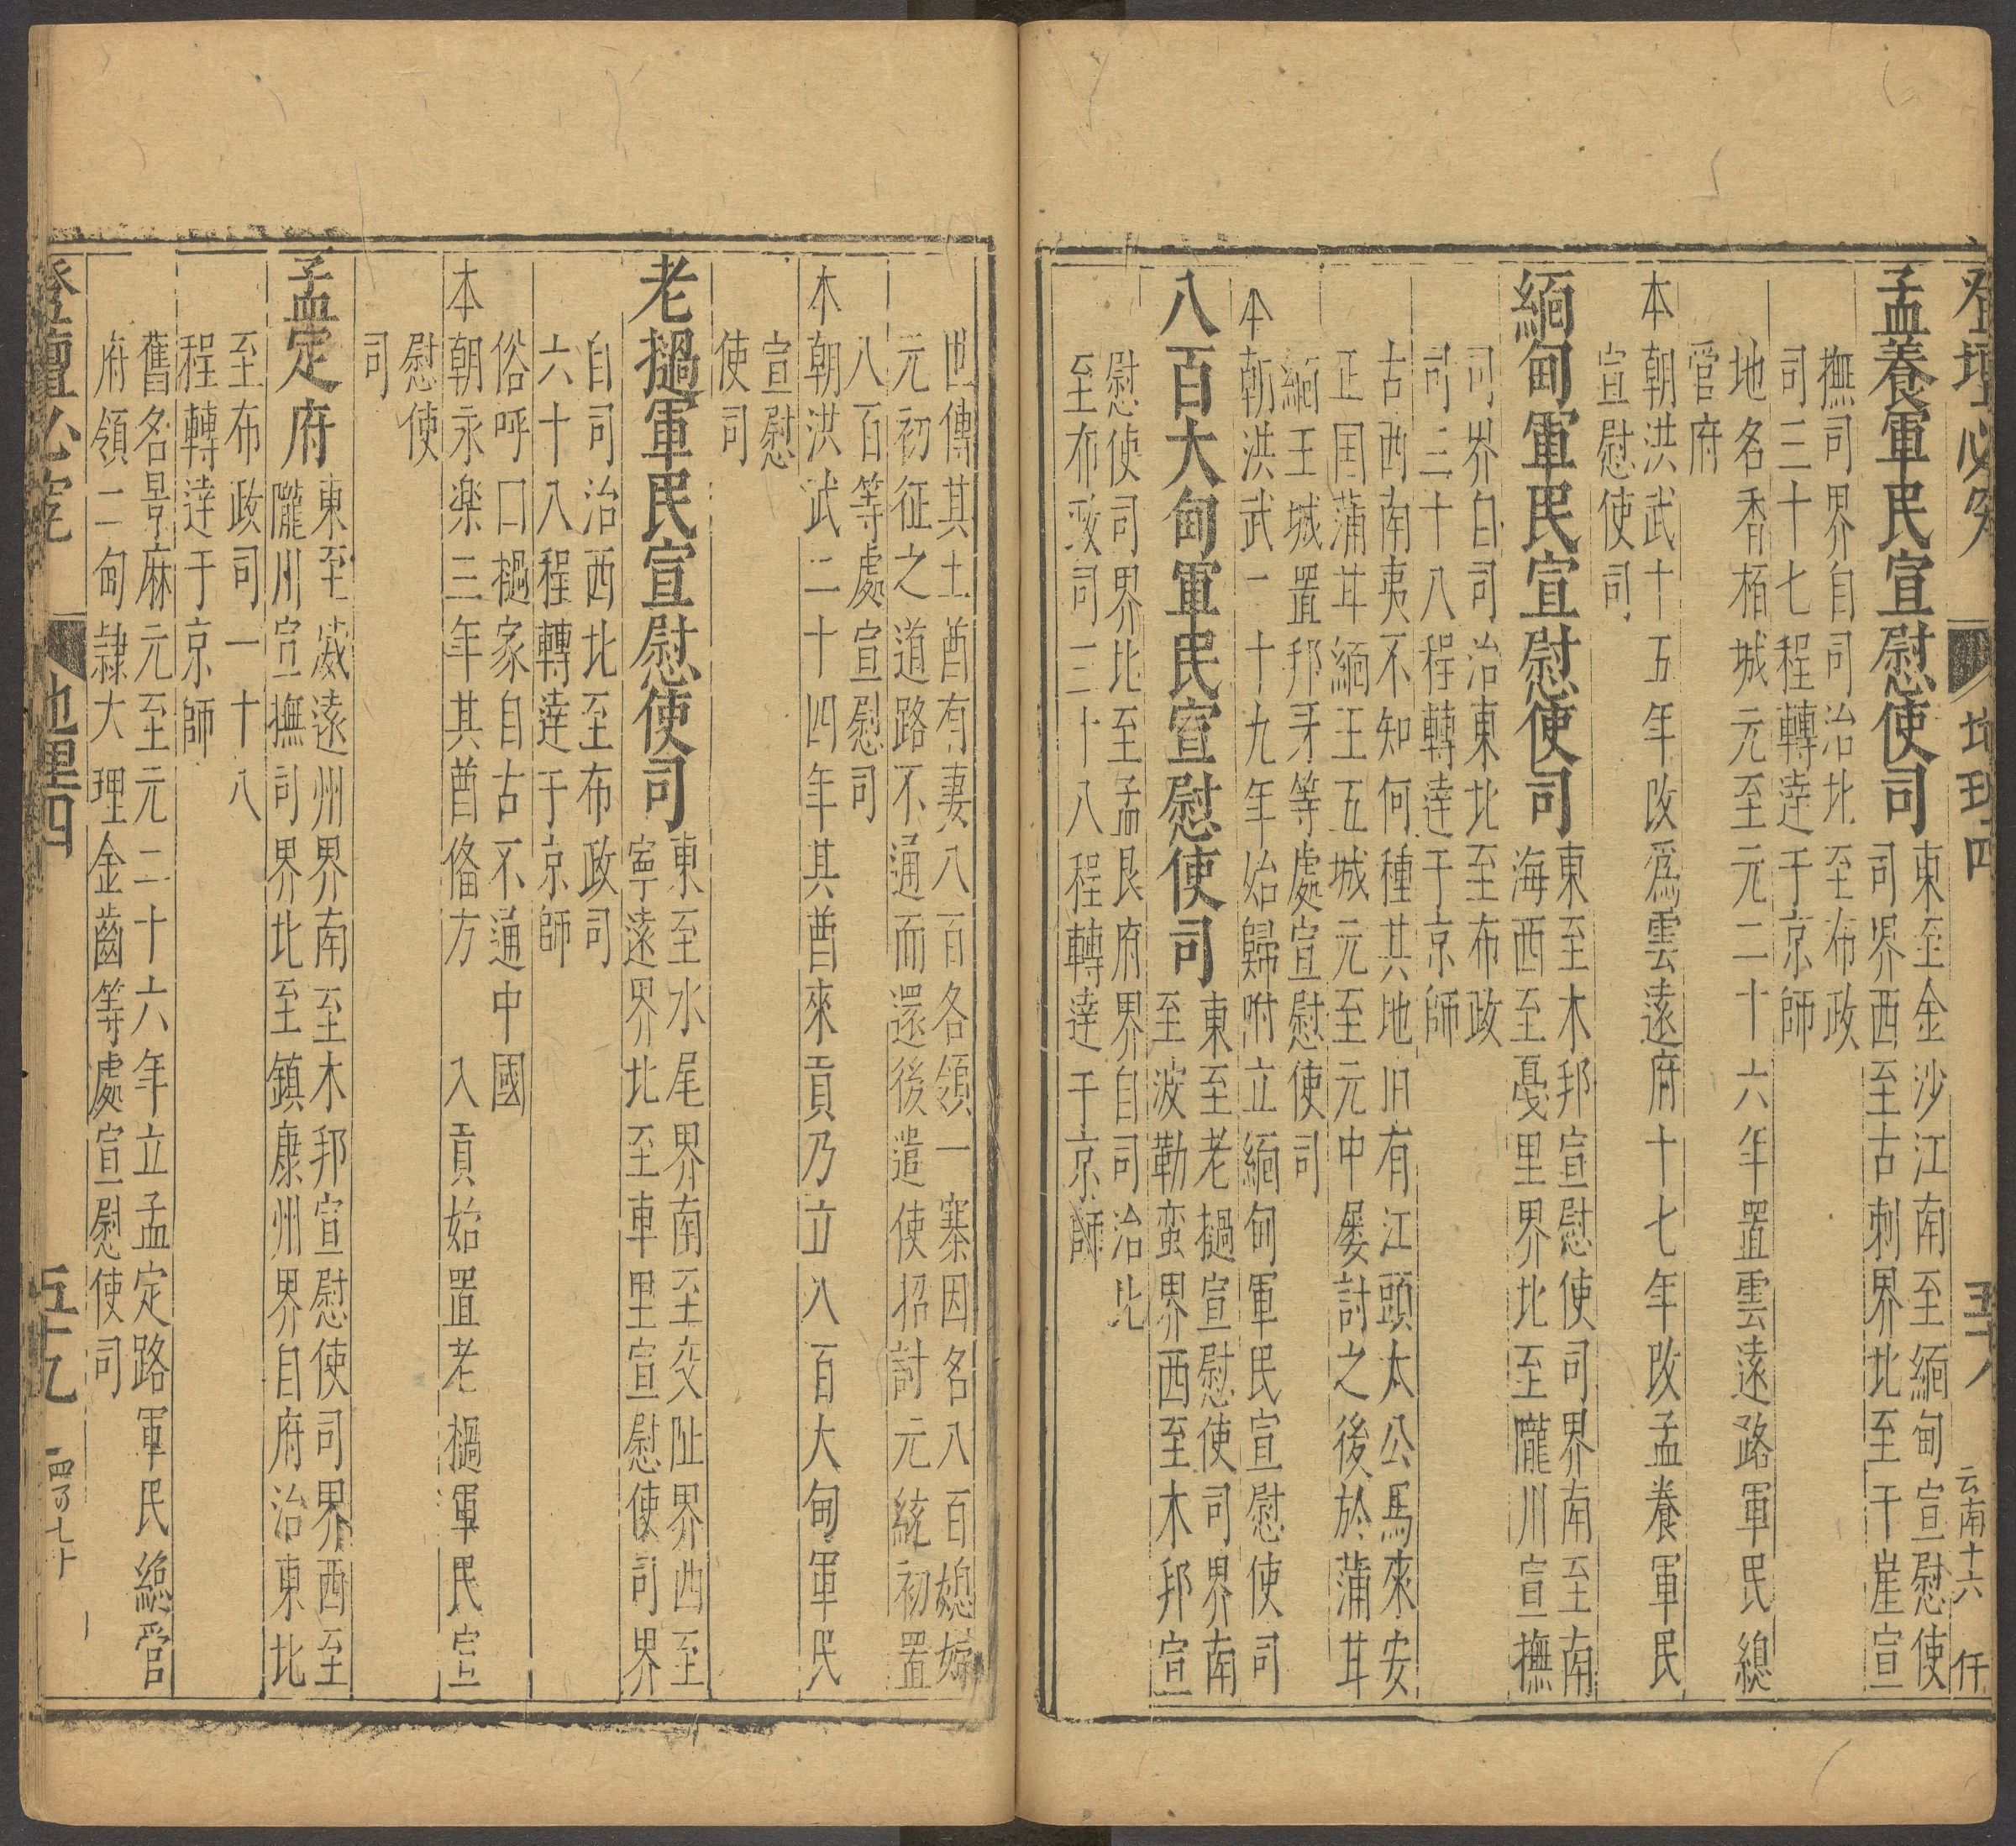 登壇必究 地理四 五十八 云南十六 仟
孟養軍民宣慰使司 東至金沙江南至緬甸宣慰使
司界西至古刺界北至干崖宣
撫司界自司治北至布政
司三十七程轉逹于京師
地名香栢城元至元二十六年置雲遠路軍民緫
管府
本朝洪武十五年改爲雲遠府十七年改孟養軍民
宣慰使司
緬甸軍民宣慰使司 東至木邦宣慰使司界南至南
海西至戞里界北至隴川宣撫
司界自司治東北至布政
司三十八程轉逹于京師
古西南夷不知何種其地旧有江頭太公馬來安
正国蒲甘緬王五城元至元中屡討之後於蒲甘
緬王城置邦牙等處宣慰使司
本朝洪武二十九年始歸附立緬甸軍民宣慰使司
八百大甸軍民宣慰使司 東至老撾宣慰使司界南
至波勒蛮界西至木邦宣
慰使司界北至孟艮府界自司治北
至布政司三十八程轉逹于京師
世傳其土酋有妻八百各領一寨因名八百媳婦
元初征之道路不通而還後遣使招討元統初置
八百等處宣慰司
本朝洪武二十四年其酋來貢乃立八百大甸軍民
宣慰
使司
老撾軍民宣慰使司 東至水尾界南至交阯界西至
寧遠界北至車里宣慰使司界
自司治西北至布政司
六十八程轉逹于京師
俗呼曰撾家自古不通中國
本朝永楽三年其酋俻方 入貢始置老撾軍民宣
慰使
司
孟定府 東至威遠州界南至木邦宣慰使司界西至
隴川宣撫司界北至鎮康州界自府治東北
至布政司一十八
程轉逹于京師
舊名景麻元至元二十六年立孟定路軍民緫管
府領二甸隷大理金齒等處宣慰使司
登壇必究 地理四 五十九